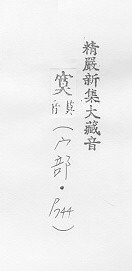 精嚴新集大藏音
（宀部・P744）